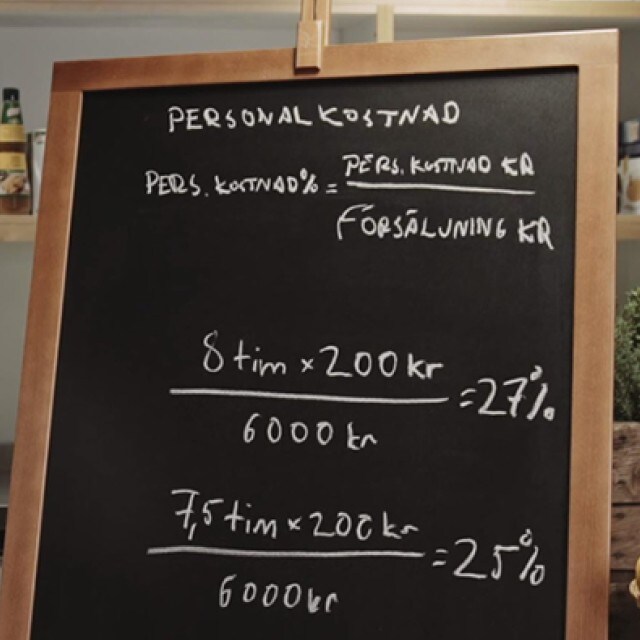 PERSONALKOSTNAD
PERS. KOSTNAD% = PERS. KOSTNAD KR
FÖRSÄLJNING KR
8 tim × 200 kr = 27%
6000 kr
7,5 tim × 200 kr = 25%
6000 kr